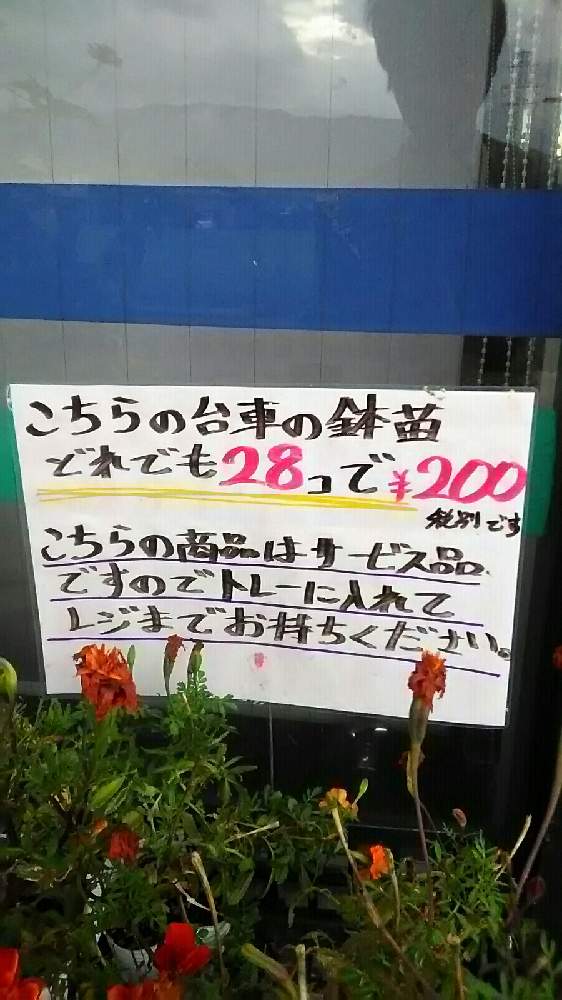 こちらの台車の鉢苗
どれでも28コで¥200
税別です
こちらの商品はサービス品
ですのでトレーに入れて
レジまでお持ちください。